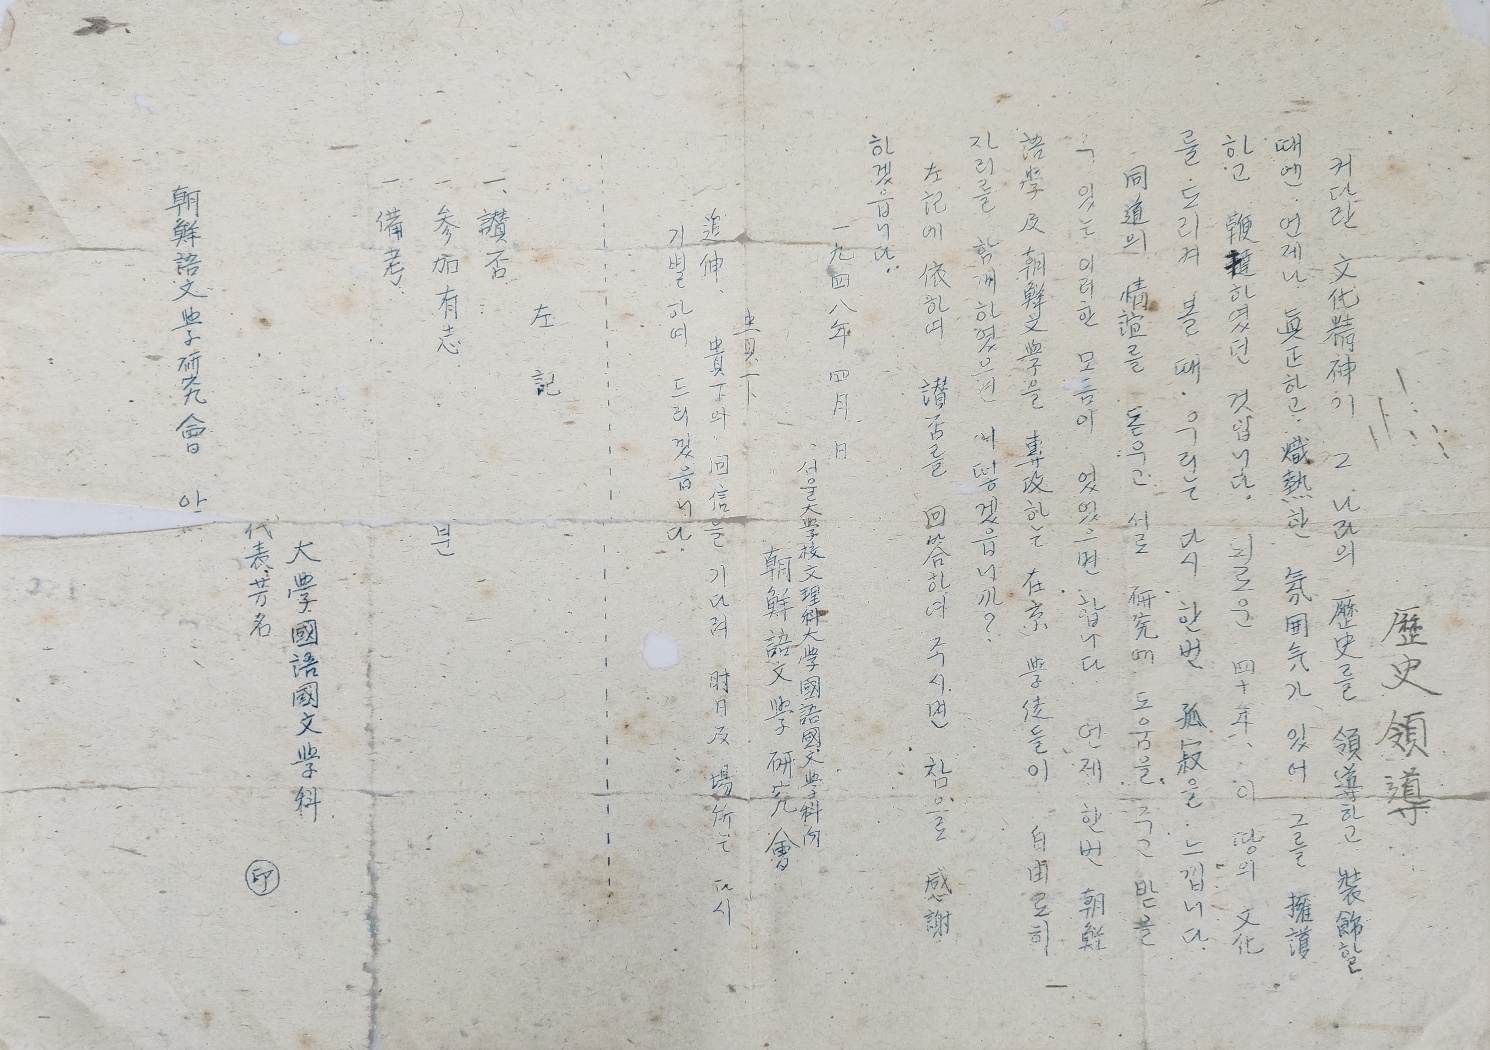 歷史領導
커다란 文化精神이 그 나라의 歷史를 領導하고 裝飾할
때엔 언제나 眞正하고 熾熱한 氛囲気가 있어 그를 擁護
하고 鞭撻하였던 것입니다. 괴로운 四十年、 이 땅의 文化
를 도리켜 볼 때. 우리는 다시 한번 孤寂을 느낍니다.
同道의 情誼를 돋우고 서로 研究에 도움을 주고 받을
수 있는 이러한 모듬이 있었으면 합니다. 언제 한번 朝鮮
語學 及 朝鮮文學을 專攻하는 在京 學徒들이 自由로히
자리를 함께하였으면 어떻겠읍니까?
左記에 依하여 讃否를 回答하여 주시면 참으로 感謝
하겠읍니다.
一九四八年 四月 日
서울大学校文理科大学國語國文學科内
朝鮮語文學研究會
貴下
追伸、 貴下의 回信을 기다려 时日及場所는 다시
기별하여 드리겠읍니다.
左記
一、讃否
一 参加有志 분
一 備考
大學國語國文學科
代表芳名 印
朝鮮語文學研究會 안